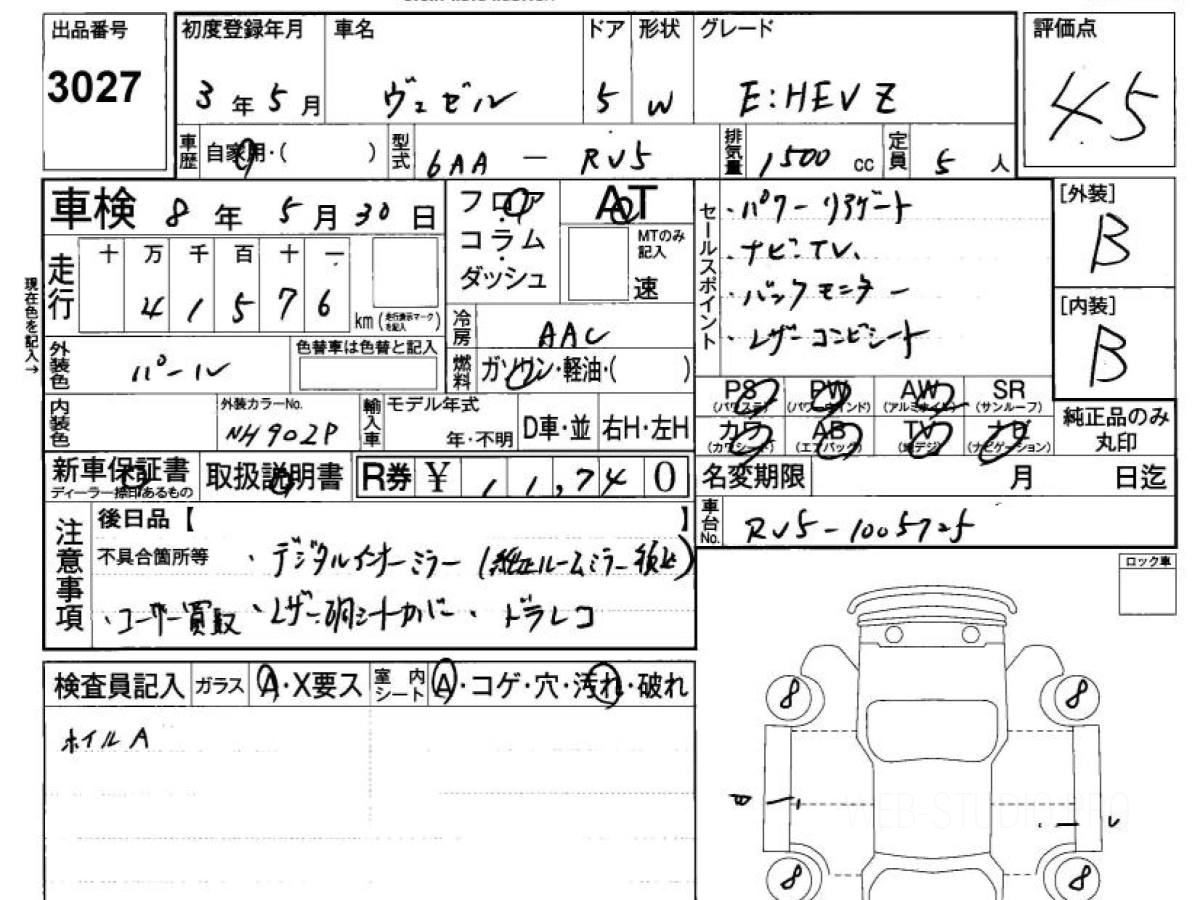 出品番号 初度登録年月 車名 ドア 形状 グレード 評価点
3027 3年5月 ヴェゼル 5 W E:HEV Z 4.5
車歴 自家用・( ) 型式 6AA - RV5 排気量 1500 cc 定員 5 人
車検 8年5月30日 フロア AT セールスポイント ・パワーリアゲート [外装]
コラム MTのみ記入 ・ナビ・TV. B
走行 十 万 千 百 十 一 ダッシュ 速 ・バックモニター [内装]
現在色を記入→ 4 1 5 7 6 km (走行表示マークを記入) 冷房 AAC ・レザーコンビシート B
外装色 パール 色替車は色替と記入 燃料 ガソリン・軽油・( )
PS (パワステ) PW (パワーウインド) AW (アルミホイル) SR (サンルーフ)
内装色 外装カラーNo. NH902P 輸入車 モデル年式 年・不明 D車・並 右H・左H
カワ (カワシート) AB (エアバッグ) TV (地デジ) ナビ (ナビゲーション) 純正品のみ丸印
新車保証書 ディーラー捺印あるもの 取扱説明書 R券 ¥ 1 1,74 0 名変期限 月 日迄
車台No. RV5-1005725
注意事項 後日品【 】
不具合箇所等 ・デジタルインナーミラー (純正ルームミラー後送)
・ユーザー買取 ・レザー調シートカバー・ドラレコ
ロック車
検査員記入 ガラス A・X要ス 室内シート A・コゲ・穴・汚れ・破れ
ホイルA
8 8
WEB-STUDIO.PRO
8 8